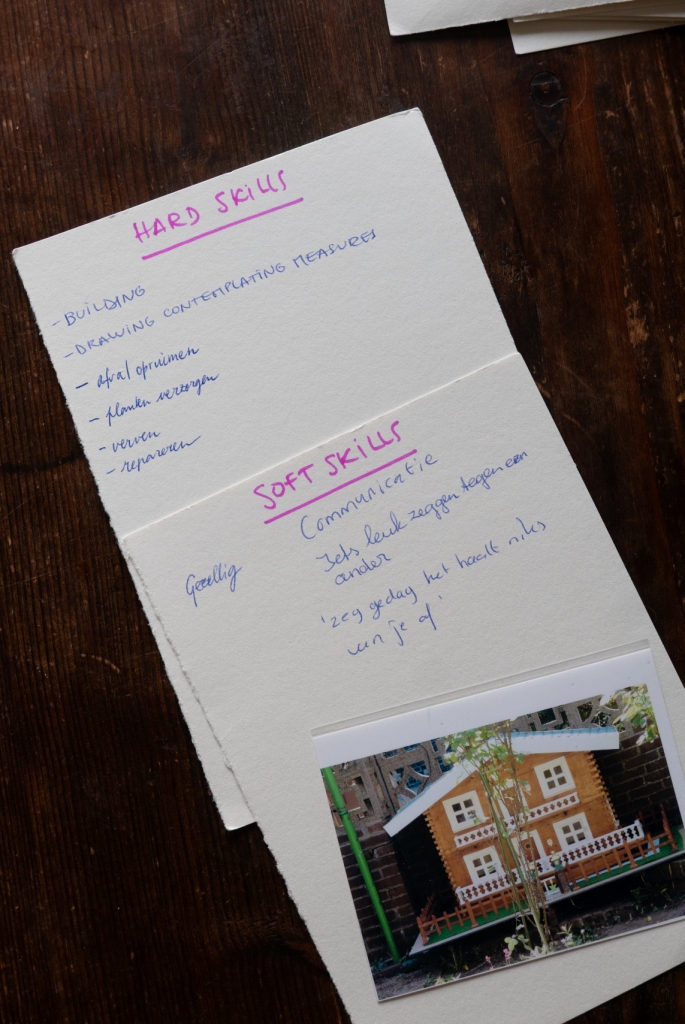 HARD SKILLS
- BUILDING
- DRAWING CONTEMPLATING MEASURES
- afval opruimen
- planten verzorgen
- verven
- repareren
SOFT SKILLS
Communicatie
Gezellig
Iets leuk zeggen tegen een
ander
'zeg gedag het haalt niks
van je af'